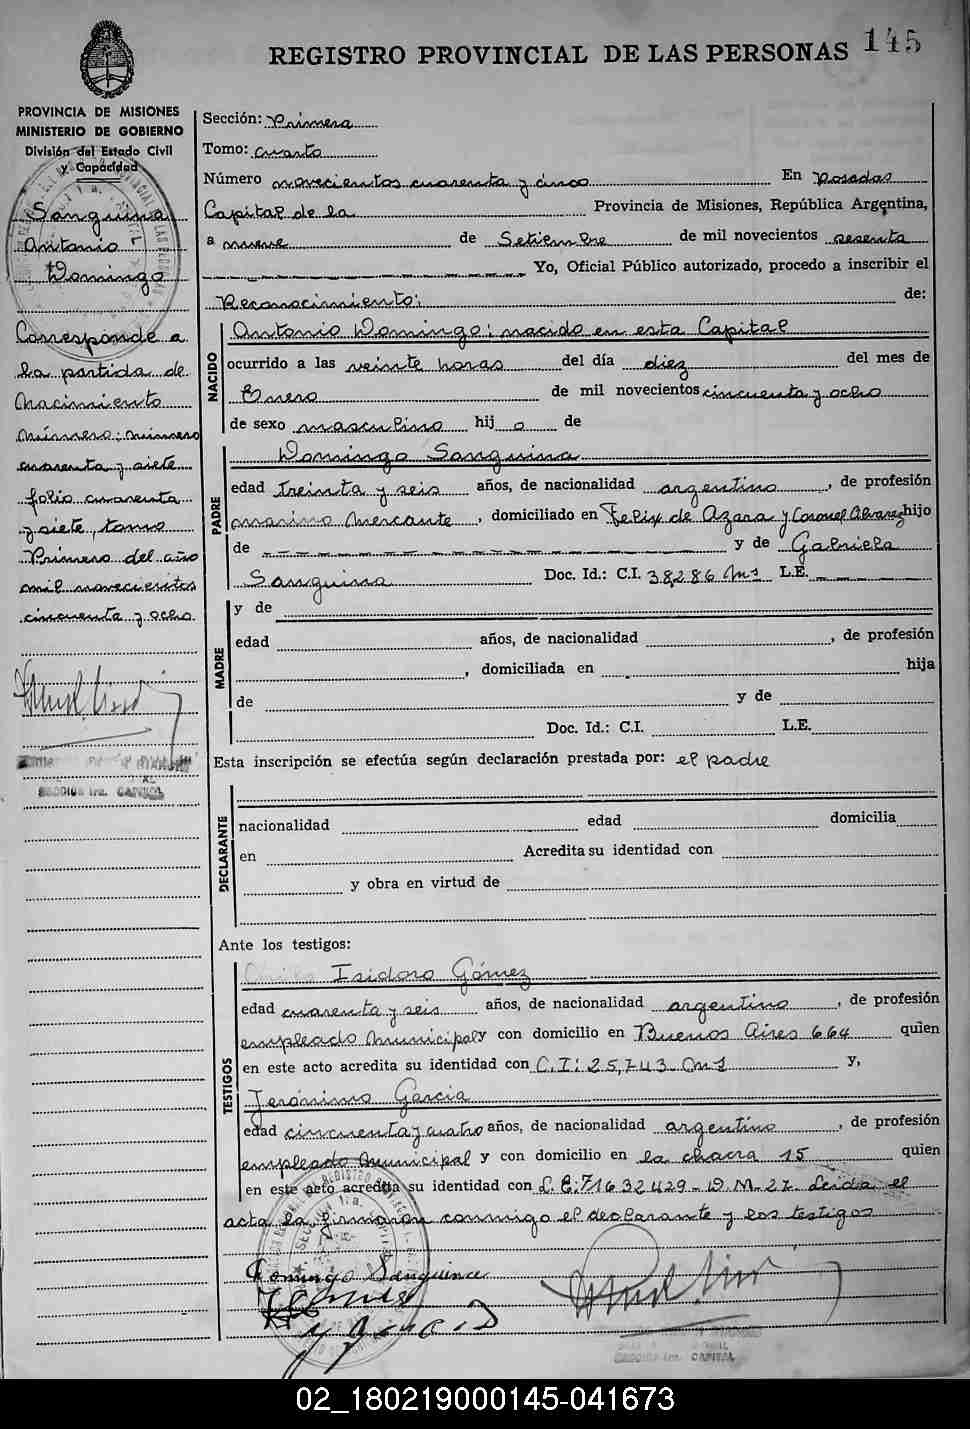 REGISTRO PROVINCIAL DE LAS PERSONAS 145
PROVINCIA DE MISIONES
MINISTERIO DE GOBIERNO
División del Estado Civil
y Capacidad
Sanguina
Antonio
Domingo
Corresponde a
la partida de
Nacimiento
número: número
cuarenta y siete
folio cuarenta
y siete, tomo
Primero del año
mil novecientos
cincuenta y ocho.
SECCION 1ra. CAPITAL
Sección: Primera
Tomo: cuarto
Número novecientos cuarenta y cinco En Posadas
Capital de la Provincia de Misiones, República Argentina,
a nueve de Setiembre de mil novecientos sesenta
Yo, Oficial Público autorizado, procedo a inscribir el
Reconocimiento: de:
NACIDO
Antonio Domingo: nacido en esta Capital
ocurrido a las veinte horas del día diez del mes de
Enero de mil novecientos cincuenta y ocho
de sexo masculino hij o de
PADRE
Domingo Sanguina
edad treinta y seis años, de nacionalidad argentino, de profesión
marino Mercante, domiciliado en Felix de Azara y Coronel Alvarez hijo
de y de Gabriela
Sanguina Doc. Id.: C.I. 38,286 Mns L.E.
MADRE
y de
edad años, de nacionalidad , de profesión
, domiciliada en hija
de y de
Doc. Id.: C.I. L.E.
Esta inscripción se efectúa según declaración prestada por: el padre
DECLARANTE
nacionalidad edad domicilia
en Acredita su identidad con
y obra en virtud de
Ante los testigos:
TESTIGOS
Isidoro Gómez
edad cuarenta y seis años, de nacionalidad argentino, de profesión
empleado Municipal y con domicilio en Buenos Aires 664 quien
en este acto acredita su identidad con C.I: 25,743 Mns y,
Jerónimo Garcia
edad cincuenta y cuatro años, de nacionalidad argentino, de profesión
empleado Municipal y con domicilio en la chacra 15 quien
en este acto acredita su identidad con L.E. 71632429 - D.M. 27. Leida el
acta la firmaron conmigo el declarante y los testigos
Domingo Sanguina
SECCION 1ra. CAPITAL
02_180219000145-041673